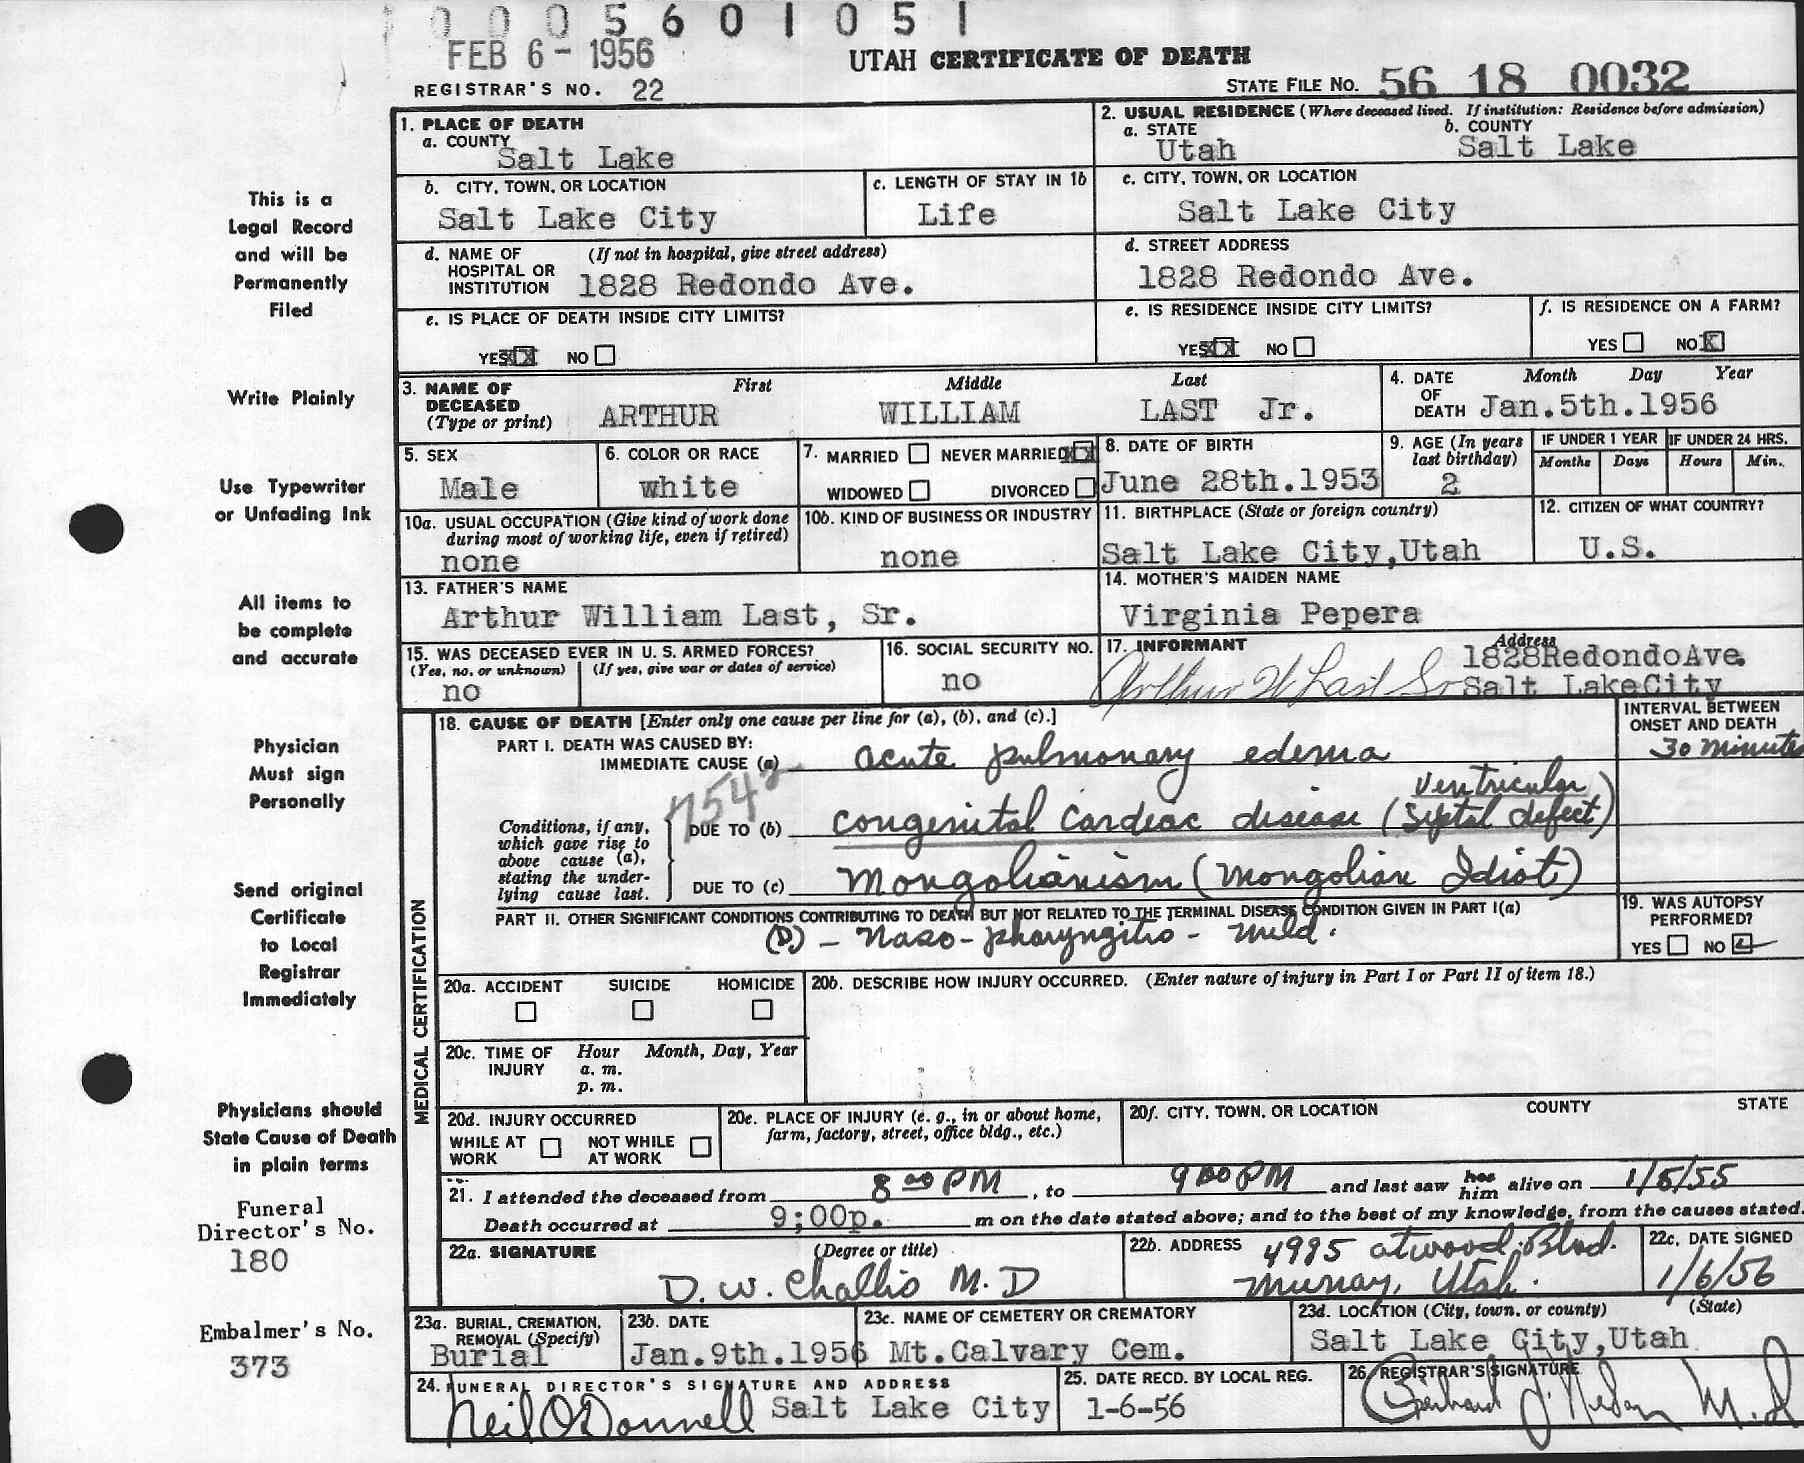 0 0 0 5 6 0 1 0 5 1
FEB 6 - 1956
UTAH CERTIFICATE OF DEATH
REGISTRAR'S NO. 22
STATE FILE NO. 56 18 0032
1. PLACE OF DEATH
a. COUNTY
Salt Lake
2. USUAL RESIDENCE (Where deceased lived. If institution: Residence before admission)
a. STATE
Utah
b. COUNTY
Salt Lake
b. CITY, TOWN, OR LOCATION
Salt Lake City
c. LENGTH OF STAY IN 1b
Life
c. CITY, TOWN, OR LOCATION
Salt Lake City
d. NAME OF HOSPITAL OR INSTITUTION
(If not in hospital, give street address)
1828 Redondo Ave.
d. STREET ADDRESS
1828 Redondo Ave.
e. IS PLACE OF DEATH INSIDE CITY LIMITS?
YES XX NO
e. IS RESIDENCE INSIDE CITY LIMITS?
YES XX NO
f. IS RESIDENCE ON A FARM?
YES NO X
3. NAME OF DECEASED
(Type or print)
First Middle Last
ARTHUR WILLIAM LAST Jr.
4. DATE OF DEATH
Month Day Year
Jan.5th.1956
5. SEX
Male
6. COLOR OR RACE
white
7. MARRIED NEVER MARRIED XX
WIDOWED DIVORCED
8. DATE OF BIRTH
June 28th.1953
9. AGE (In years last birthday)
2
IF UNDER 1 YEAR IF UNDER 24 HRS.
Months Days Hours Min.
10a. USUAL OCCUPATION (Give kind of work done
during most of working life, even if retired)
none
10b. KIND OF BUSINESS OR INDUSTRY
none
11. BIRTHPLACE (State or foreign country)
Salt Lake City,Utah
12. CITIZEN OF WHAT COUNTRY?
U.S.
13. FATHER'S NAME
Arthur William Last, Sr.
14. MOTHER'S MAIDEN NAME
Virginia Pepera
15. WAS DECEASED EVER IN U. S. ARMED FORCES?
(Yes, no, or unknown) (If yes, give war or dates of service)
no
16. SOCIAL SECURITY NO.
no
17. INFORMANT Address
Arthur W Last Sr
1828RedondoAve.
Salt LakeCity
MEDICAL CERTIFICATION
18. CAUSE OF DEATH [Enter only one cause per line for (a), (b), and (c).]
INTERVAL BETWEEN
ONSET AND DEATH
PART I. DEATH WAS CAUSED BY:
IMMEDIATE CAUSE (a) acute pulmonary edema
30 minutes
7542
Conditions, if any,
which gave rise to
above cause (a),
stating the under-
lying cause last.
DUE TO (b) congenital cardiac disease (ventricular septal defect)
DUE TO (c) Mongolianism (Mongolian Idiot)
PART II. OTHER SIGNIFICANT CONDITIONS CONTRIBUTING TO DEATH BUT NOT RELATED TO THE TERMINAL DISEASE CONDITION GIVEN IN PART I(a)
(D) - Naso-pharyngitis - mild.
19. WAS AUTOPSY
PERFORMED?
YES NO
20a. ACCIDENT SUICIDE HOMICIDE
20b. DESCRIBE HOW INJURY OCCURRED. (Enter nature of injury in Part I or Part II of item 18.)
20c. TIME OF INJURY
Hour Month, Day, Year
a. m.
p. m.
20d. INJURY OCCURRED
WHILE AT WORK NOT WHILE AT WORK
20e. PLACE OF INJURY (e. g., in or about home,
farm, factory, street, office bldg., etc.)
20f. CITY, TOWN, OR LOCATION COUNTY STATE
21. I attended the deceased from 8 00 PM, to 9 00 PM and last saw her him alive on 1/5/55
Death occurred at 9;00p. m on the date stated above; and to the best of my knowledge, from the causes stated.
22a. SIGNATURE (Degree or title)
D. W. Challis M.D
22b. ADDRESS
4995 Atwood Blvd.
Murray, Utah.
22c. DATE SIGNED
1/6/56
23a. BURIAL, CREMATION,
REMOVAL (Specify)
Burial
23b. DATE
Jan.9th.1956
23c. NAME OF CEMETERY OR CREMATORY
Mt.Calvary Cem.
23d. LOCATION (City, town, or county) (State)
Salt Lake City,Utah
24. FUNERAL DIRECTOR'S SIGNATURE AND ADDRESS
Neil O'Donnell Salt Lake City
25. DATE RECD. BY LOCAL REG.
1-6-56
26. REGISTRAR'S SIGNATURE
M.D
This is a
Legal Record
and will be
Permanently
Filed
Write Plainly
Use Typewriter
or Unfading Ink
All items to
be complete
and accurate
Physician
Must sign
Personally
Send original
Certificate
to Local
Registrar
Immediately
Physicians should
State Cause of Death
in plain terms
Funeral
Director's No.
180
Embalmer's No.
373